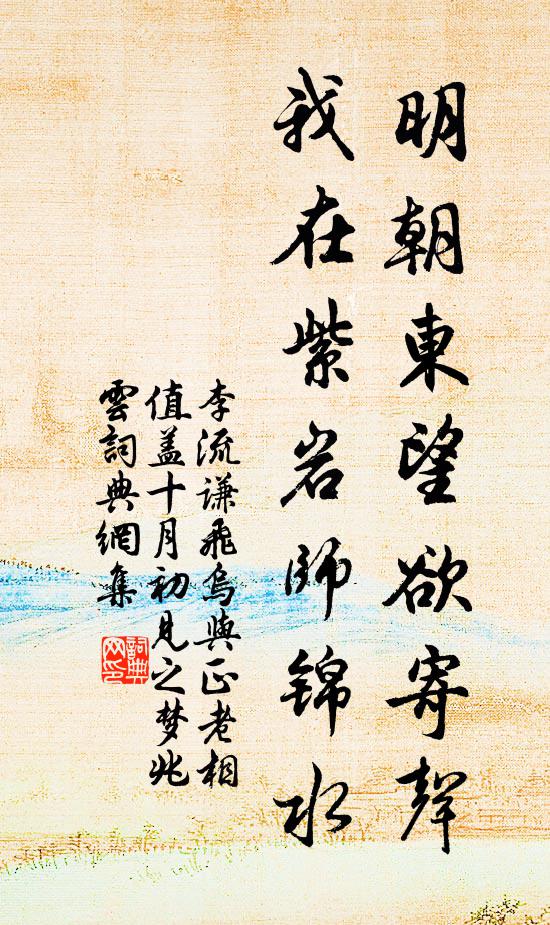 明朝東望欲寄聲
我在紫岩師錦水
李流謙飛烏與正老相
值盖十月初見之梦兆
雲詞典網集
詞典
网印